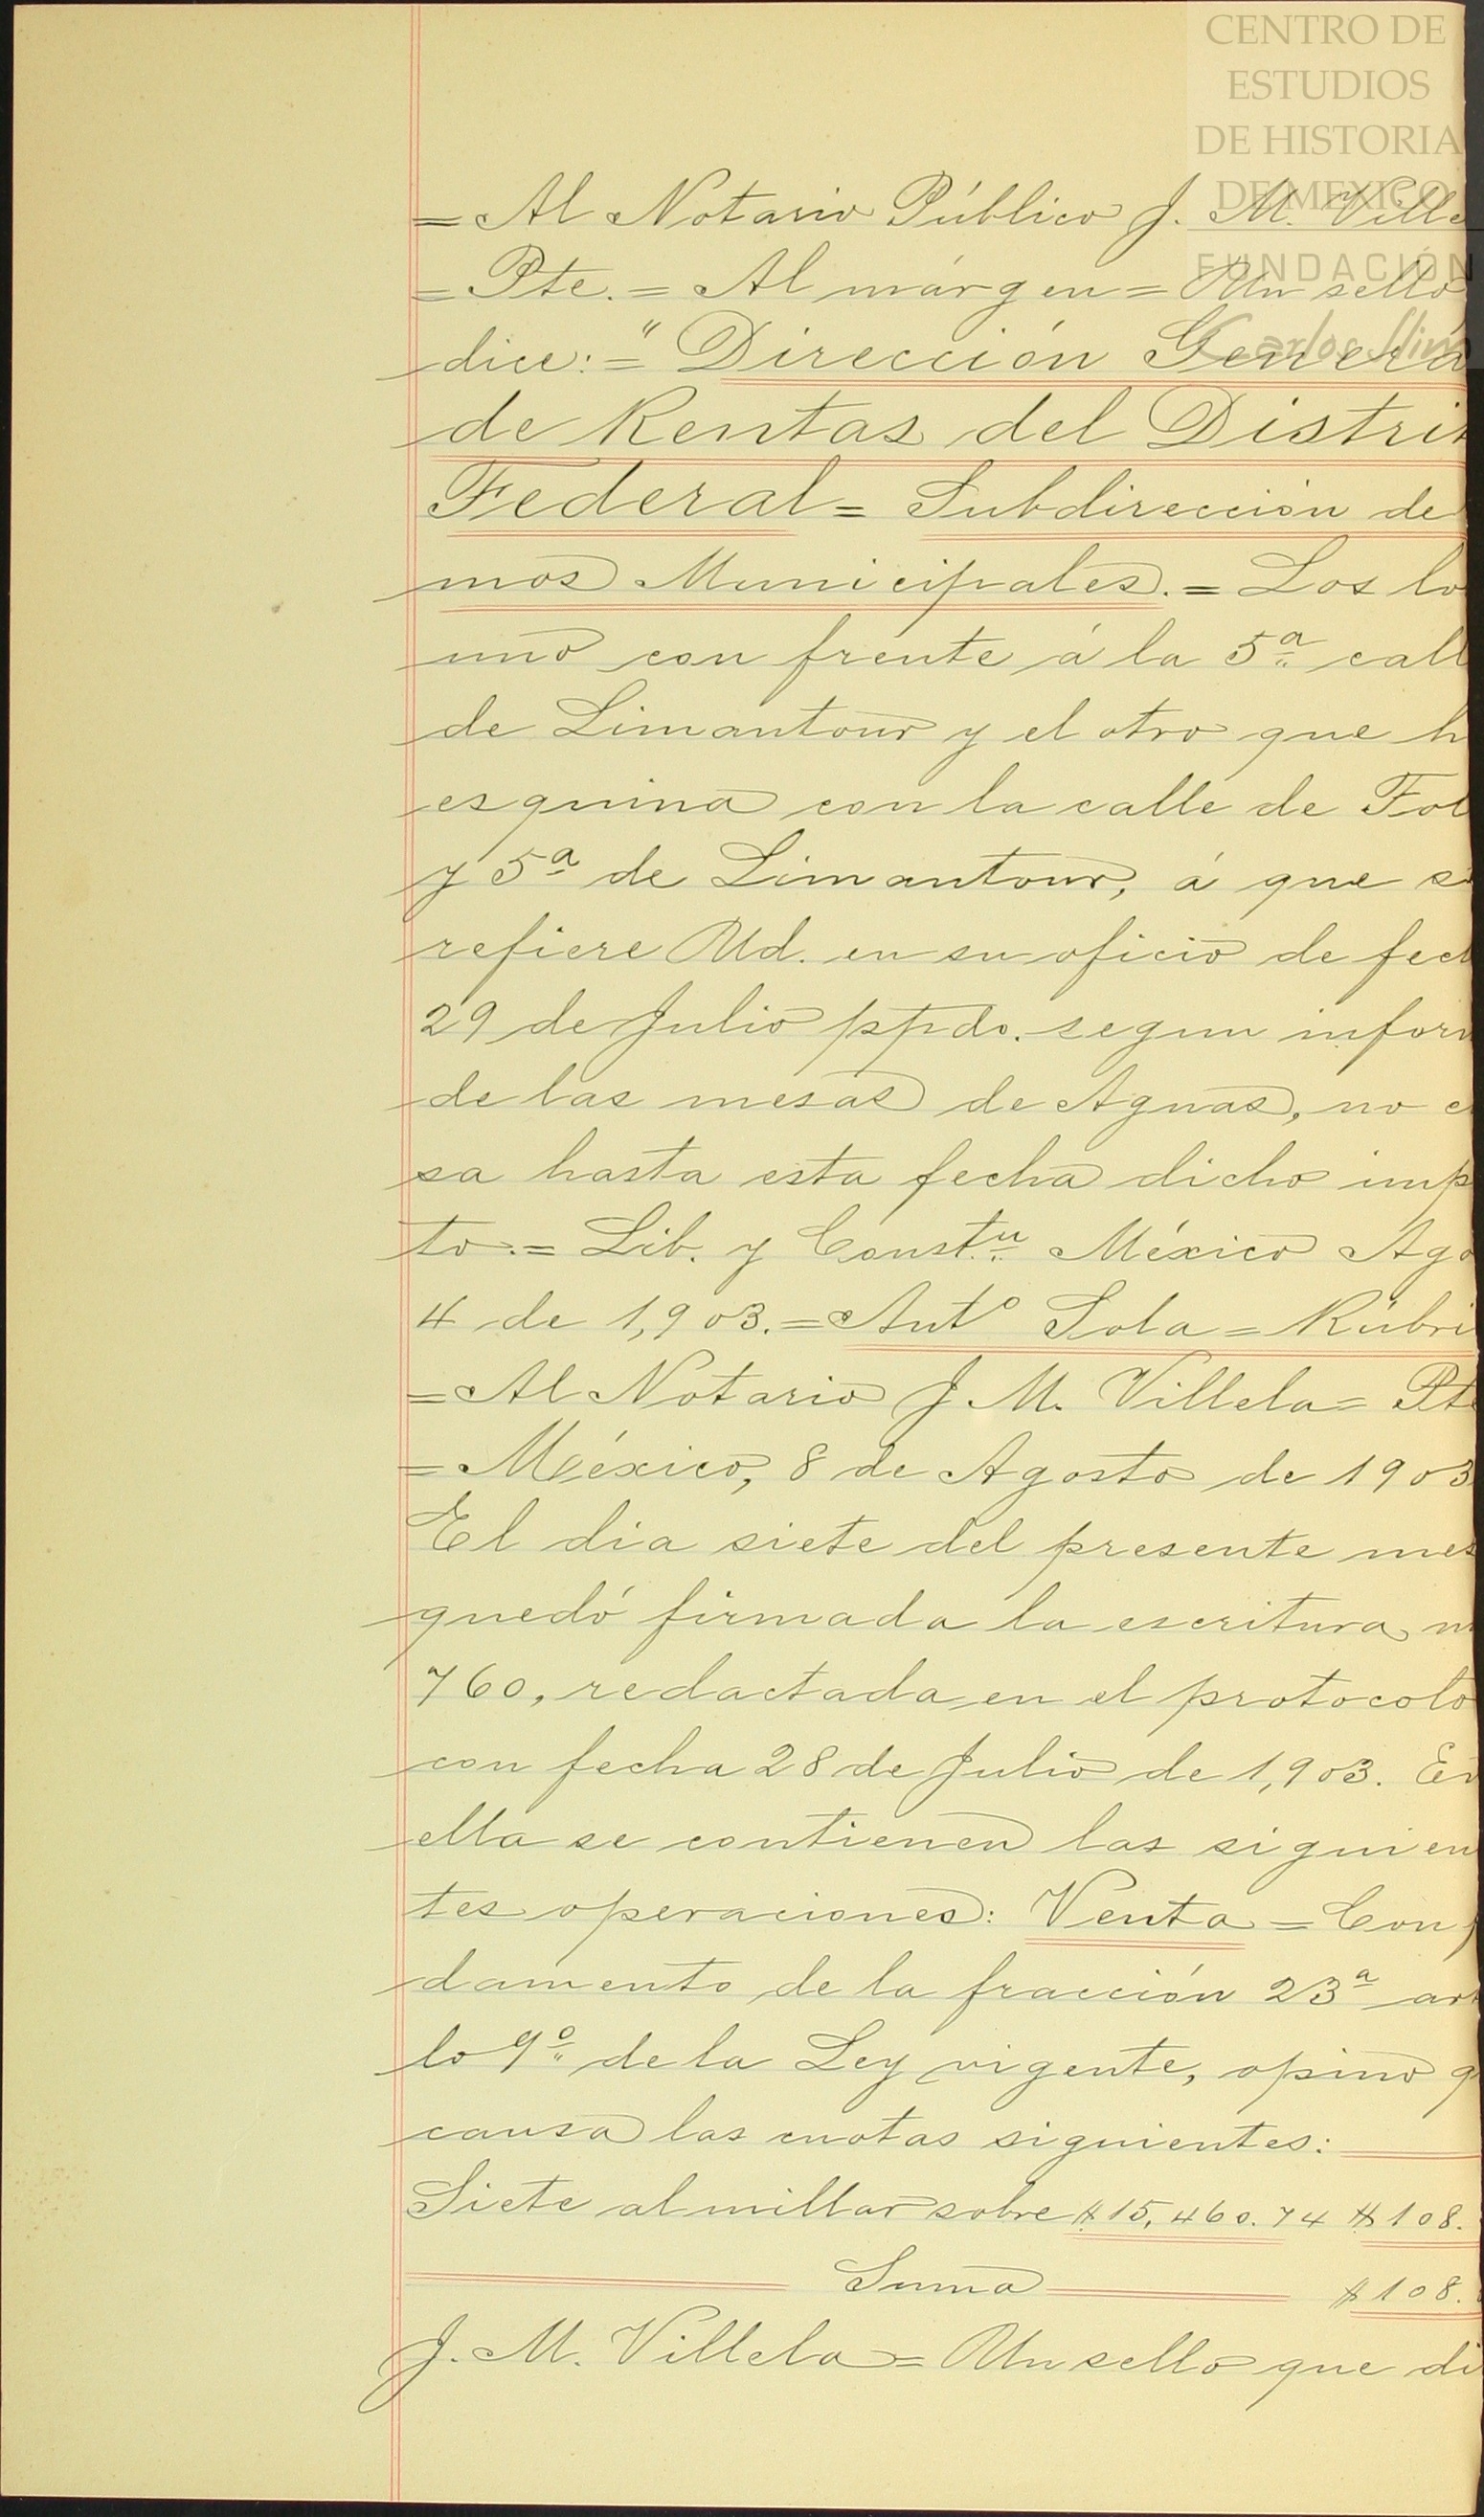 CENTRO DE
ESTUDIOS
DE HISTORIA
DE MEXICO
FUNDACIÓN
Carlos Slim
= Al Notario Público J. M. Ville
= Pte. = Al márgen = Un sello
dice: = "Dirección Genera
de Rentas del Distri
Federal = Subdirección de
mos Municipales. = Los lo
uno con frente á la 5ª call
de Limantour y el otro que h
esquina con la calle de Tol
y 5ª de Limantour, á que s
refiere Ud. en su oficio de fech
29 de Julio ppdo. segun infor
de las mesas de Aguas, no c
sa hasta esta fecha dicho imp
to. = Lib. y Constn México Ago
4 de 1,903. = Anto Sola = Rúbri
= Al Notario J M. Villela = Pte
= México, 8 de Agosto de 1903
El dia siete del presente mes
quedó firmada la escritura n
760, redactada en el protocolo
con fecha 28 de Julio de 1,903. En
ella se contienen las siguien
tes operaciones: Venta = Con f
damento de la fracción 23ª art
lo 9º de la Ley vigente, opino q
causa las cuotas siguientes:
Siete al millar sobre $15,460.74 $108.
Suma $108.
J. M. Villela = Un sello que di